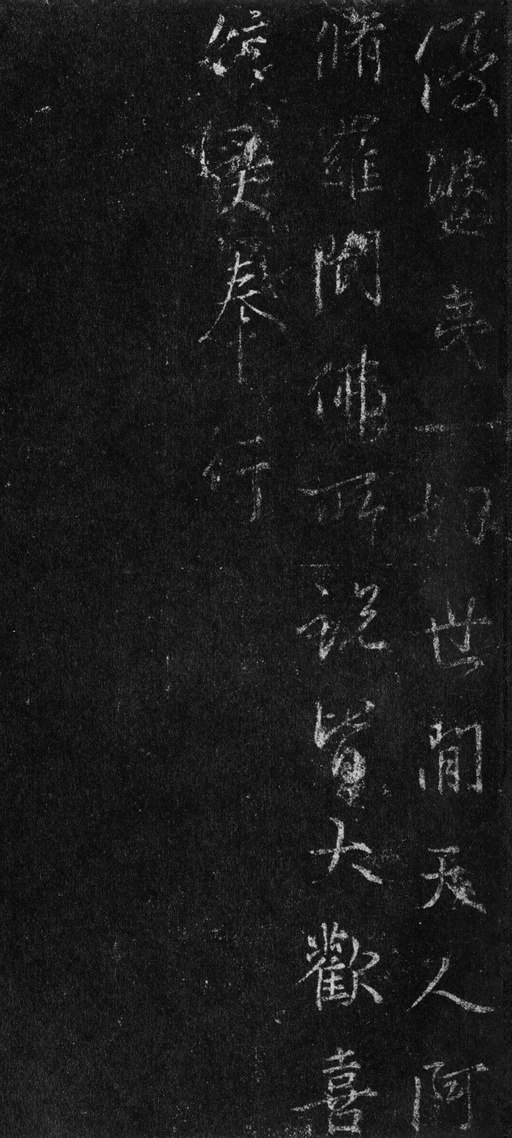 優婆夷一切世間天人阿
脩羅聞佛所說皆大歡喜
信受奉行